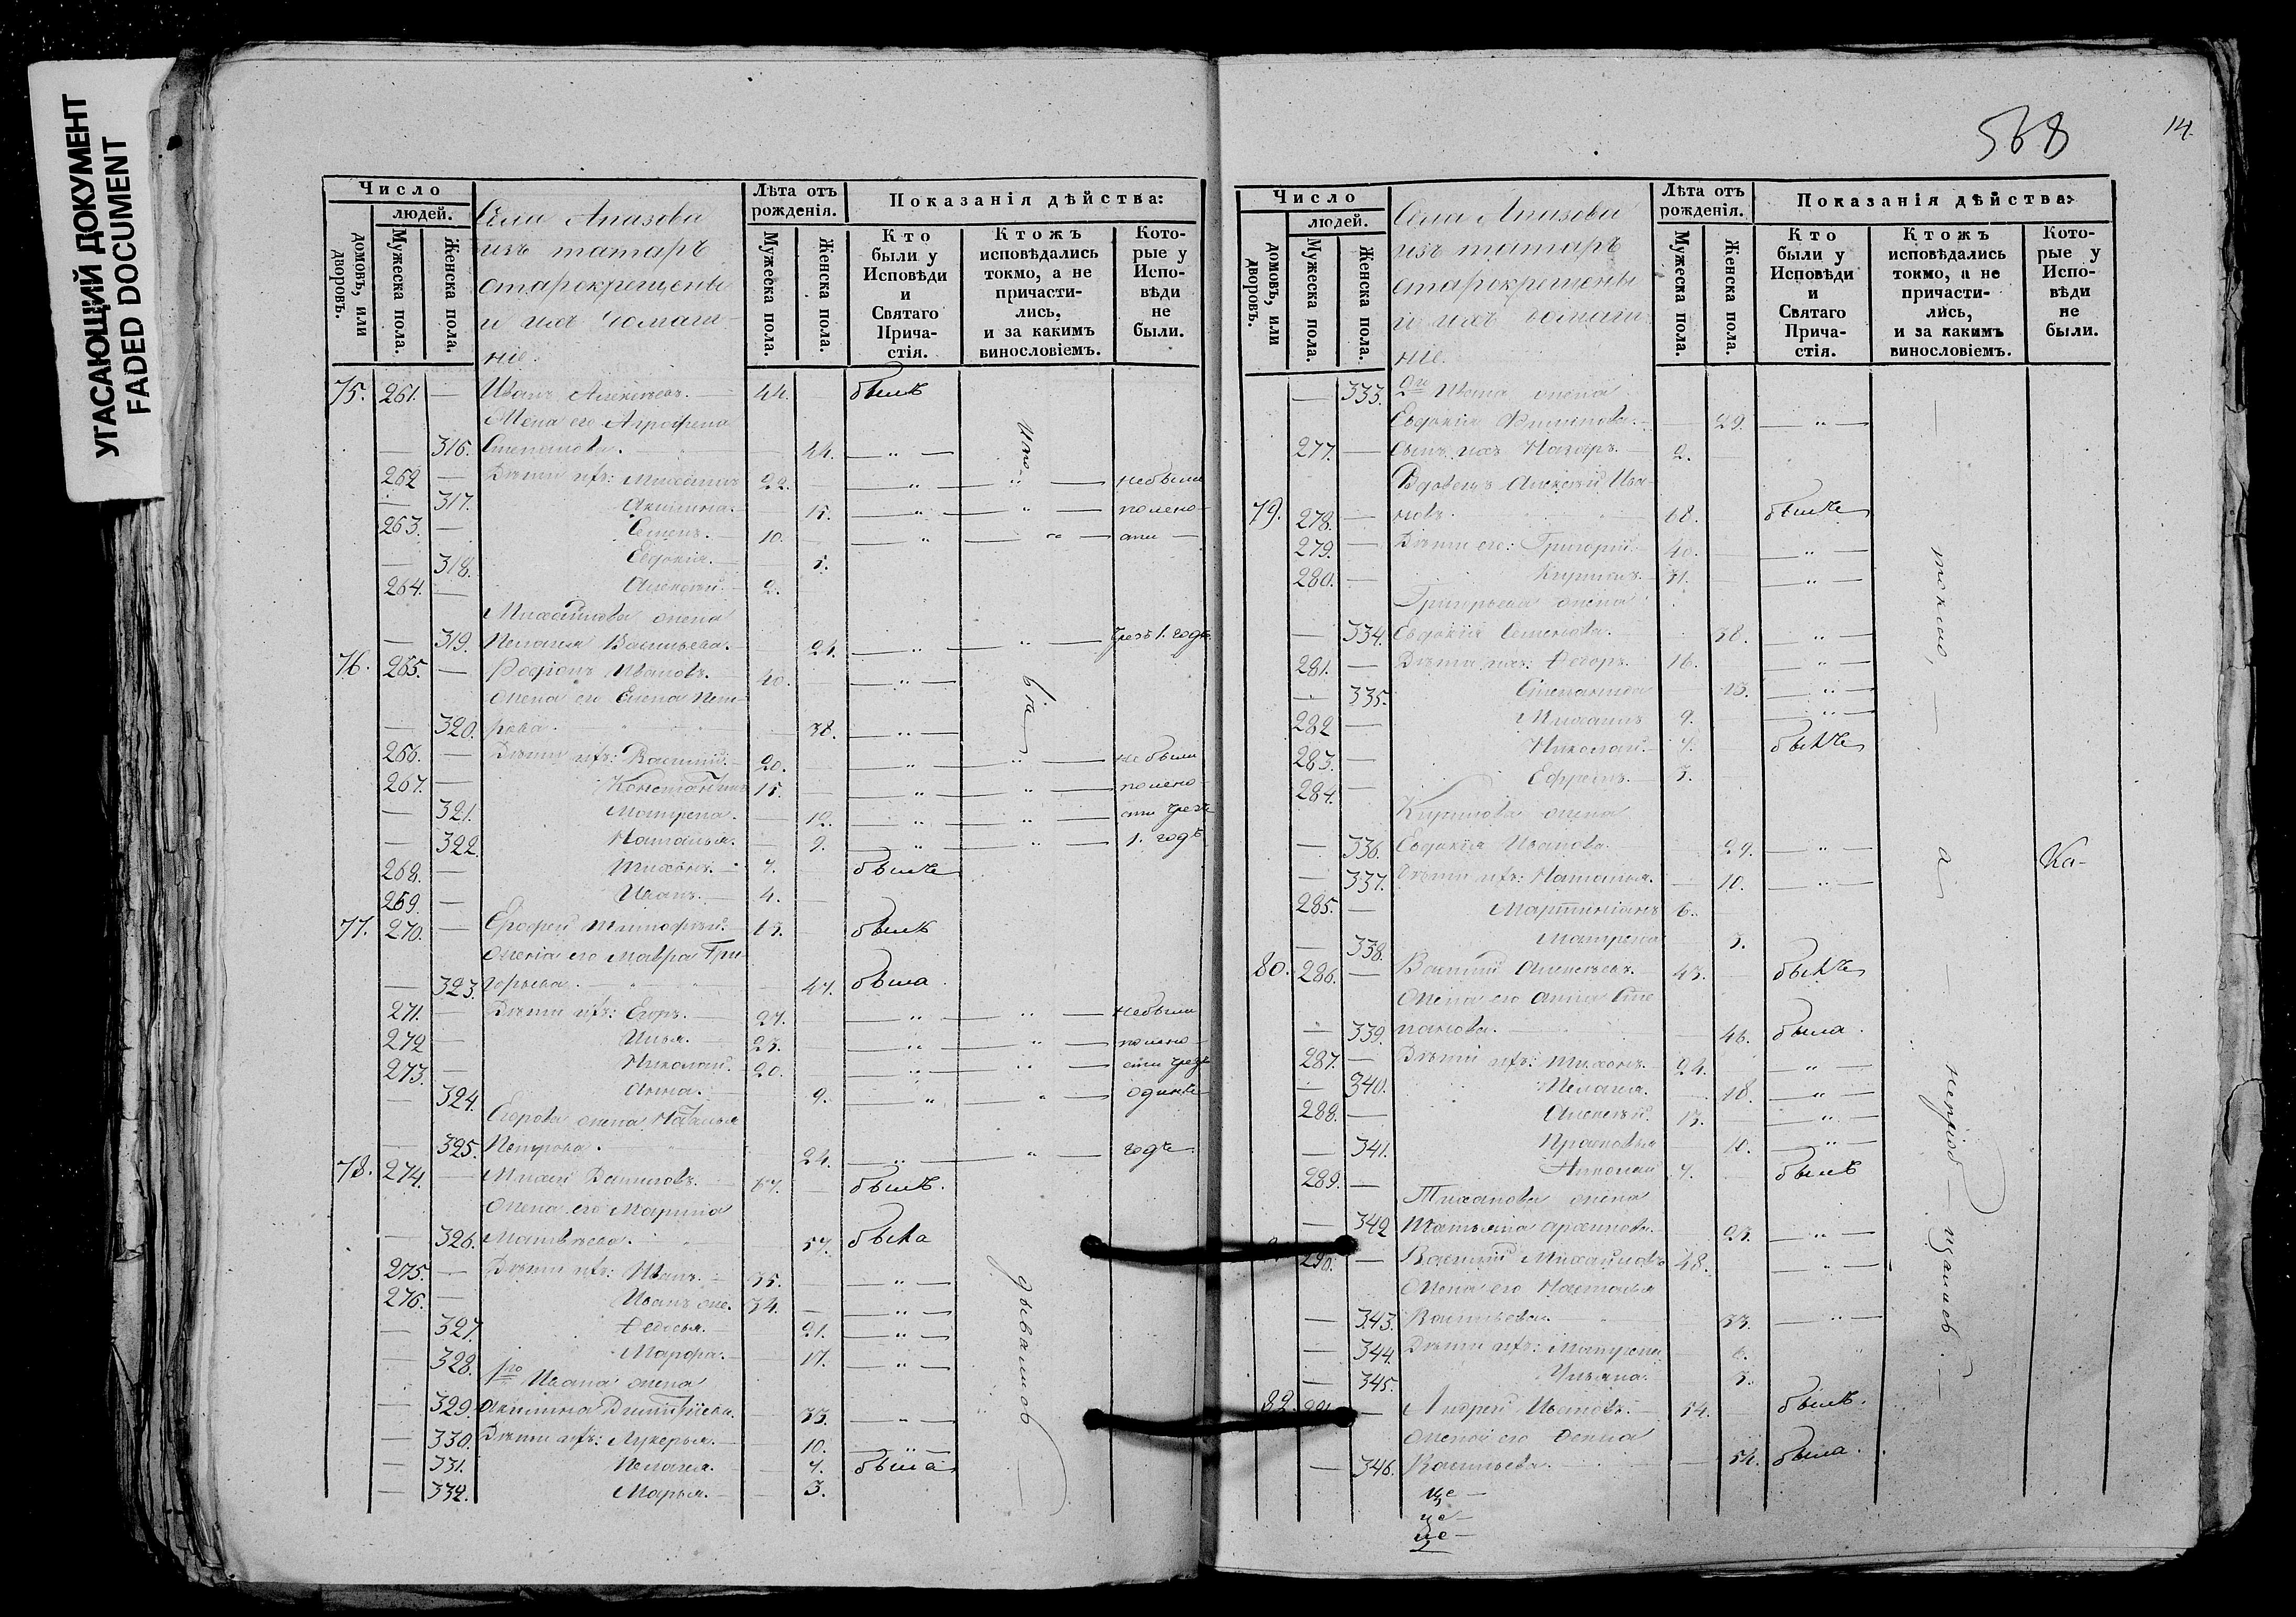 УГАСАЮЩИЙ ДОКУМЕНТ
FADED DOCUMENT
Число
людей.
домовъ, или дворовъ.
Мужеска пола.
Женска пола.
Села Апазова
изъ татаръ
старокрещены
и ихъ домаш-
ніе.
Лѣта отъ рожденія.
Мужеска пола.
Женска пола.
Показанія дѣйства:
Кто были у Исповѣди и Святаго Прича- стія.
Ктожъ исповѣдались токмо, а не причасти- лись, и за какимъ винословіемъ.
Кото- рые у Испо- вѣди не были.
75. 261. — Иванъ Алексѣевъ. — 44. былъ
Жена его Агрофена
— 316. Степанова. — 44. — „ —
262 — Дѣти ихъ: Михаилъ 22. — „ — „ — небыли
— 317. Акилина. — 15. — „ — „ — полено-
263. — Семенъ. — 10. — „ — „ — сти —
— 318. Евдокія. — 5.
264. — Алексѣй. — 2.
Михайлова жена
— 319. Пелагея Васильева. — 24. — „ — „ — чрезъ 1. годъ.
76. 265. — Родіонъ Ивановъ. — 40. — „ —
жена его Елена Пет-
— 320. рова. — 38. — „ —
266. — Дѣти ихъ: Василій. — 20. — „ — „ — не были
267. — Константинъ 15. — „ — „ — полено-
— 321. Матрена. — 12. — „ — „ — сти чрезъ
— 322. Наталья. — 9. — „ — „ — 1. годъ
268. — Тихонъ. — 7. былъ
269. — Иванъ. — 4.
77. 270. — Ерофей Тимофѣй. — былъ
жена его Мавра Гри-
— 323. горьева. — 47. была
271. — Дѣти ихъ: Егоръ. — 27. — „ — „ — небыли
272 — Илья. — 23. — „ — „ — полено-
273. — Николай. — 20. — „ — „ — сти чрезъ
— 324. Анна. — 9. — „ — „ — одинъ
Егорова жена Наталья
— 325. Петрова. — 24. — „ — „ — годъ
78. 274. — Михей Даниловъ. — 67. — былъ.
жена его Марина
— 326. Матвѣева. — 57. была
275. — Дѣти ихъ: Иванъ. — 35. — „ —
276. — Иванъ же. 34. — „ —
— 327. Федосья. — 21. — „ —
— 328. Марфа. — 17. — „ —
1го Ивана жена
— 329. Акилина Дмитріева. — 33. — „ —
— 330. Дѣти ихъ: Лукерья. — 10. — „ —
— 331. Пелагея. — 7. была
— 332. Марья. — 3.
568
14.
Число
людей.
домовъ, или дворовъ.
Мужеска пола.
Женска пола.
Села Апазова
изъ татаръ
старокрещены
и ихъ домаш
ніе.
Лѣта отъ рожденія.
Мужеска пола.
Женска пола.
Показанія дѣйства:
Кто были у Исповѣди и Святаго Прича- стія.
Ктожъ исповѣдались токмо, а не причасти- лись, и за какимъ винословіемъ.
Кото- рые у Испо- вѣди не были.
— 333. 2го Ивана жена
Евдокія Филипова. — 29. — „ —
277. — Сынъ ихъ Назаръ. — 2.
Вдовецъ Алексѣй Ива-
79. 278. — новъ. 68. былъ
279. — Дѣти его: Григорій. — 40. — „ —
280. — Кирилъ. — 31. — „ —
Григорьева жена
— 334. Евдокія Семенова. 38. — „ —
281. — Дѣти ихъ: Федоръ. 16. — „ —
— 335. Степанида 13. — „ —
282 — Михаилъ 9. — „ —
283. — Николай. — 7. былъ
284. — Ефремъ. — 3.
Кирилова жена
— 336. Евдокія Иванова. 29. — „ —
— 337. Дѣти ихъ: Наталья. — 10. — „ —
285. — Мартиніанъ 6.
— 338. Матрена 3.
80. 286. — Василій Алексѣевъ. — 43. былъ
жена его Анна Сте
— 339. панова. — 46. была.
287. — Дѣти ихъ: Тихонъ. 24. — „ —
— 340. Пелагея. — 18. — „ —
288. — Алексѣй. 13. — „ —
— 341. Прасковья 10. — „ —
289. — Николай 7. былъ
Тиханова жена
— 342 Татьяна Архипова. — 23. — „ —
290. — Василій Михайловъ 48. — „ —
жена его Настасья
— 343. Васильева. — 33. — „ —
— 344. Дѣти ихъ: Матрена 6.
— 345. Ульяна. — 3.
82. 291. — Андрей Ивановъ. — 54. былъ.
жена его Фекла
— 346. Васильева. — 54. была.
токмо, — а
Ка-